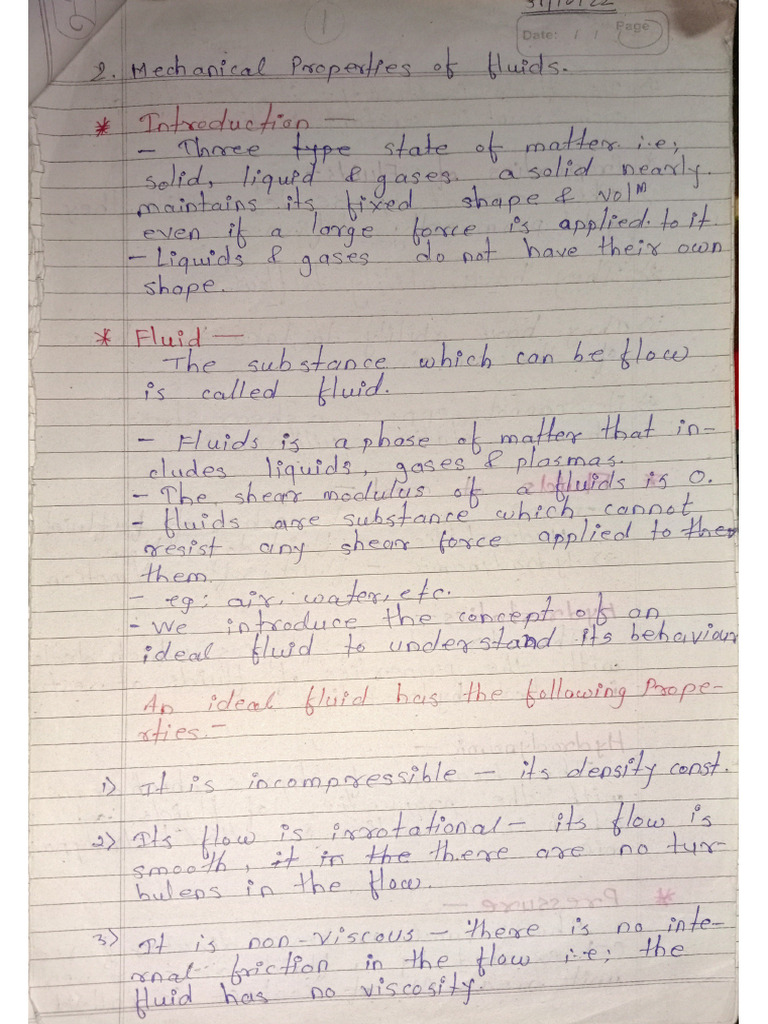 31/10/22
1
Date: / / Page
2. Mechanical Properties of fluids.
* Introduction —
- Three type state of matter i.e;
solid, liquid & gases. a solid nearly.
maintains its fixed shape & volᴹ
even if a large force is applied to it.
- Liquids & gases do not have their own
shape.
* Fluid —
The substance which can be flow
is called fluid.
- Fluids is a phase of matter that in-
cludes liquids, gases & plasmas.
- The shear modulus of a fluids is 0.
- fluids are substance which cannot
resist any shear force applied to the
them.
- eg; air, water, etc.
- We introduce the concept of an
ideal fluid to understand its behaviour
An ideal fluid has the following Prope-
rties.-
1) It is incompressible - its density const.
2) Its flow is irrotational - its flow is
smooth, it is the there are no tur-
bulens in the flow.
3) It is non-viscous - there is no inte-
rnal friction in the flow i.e; the
fluid has no viscosity.